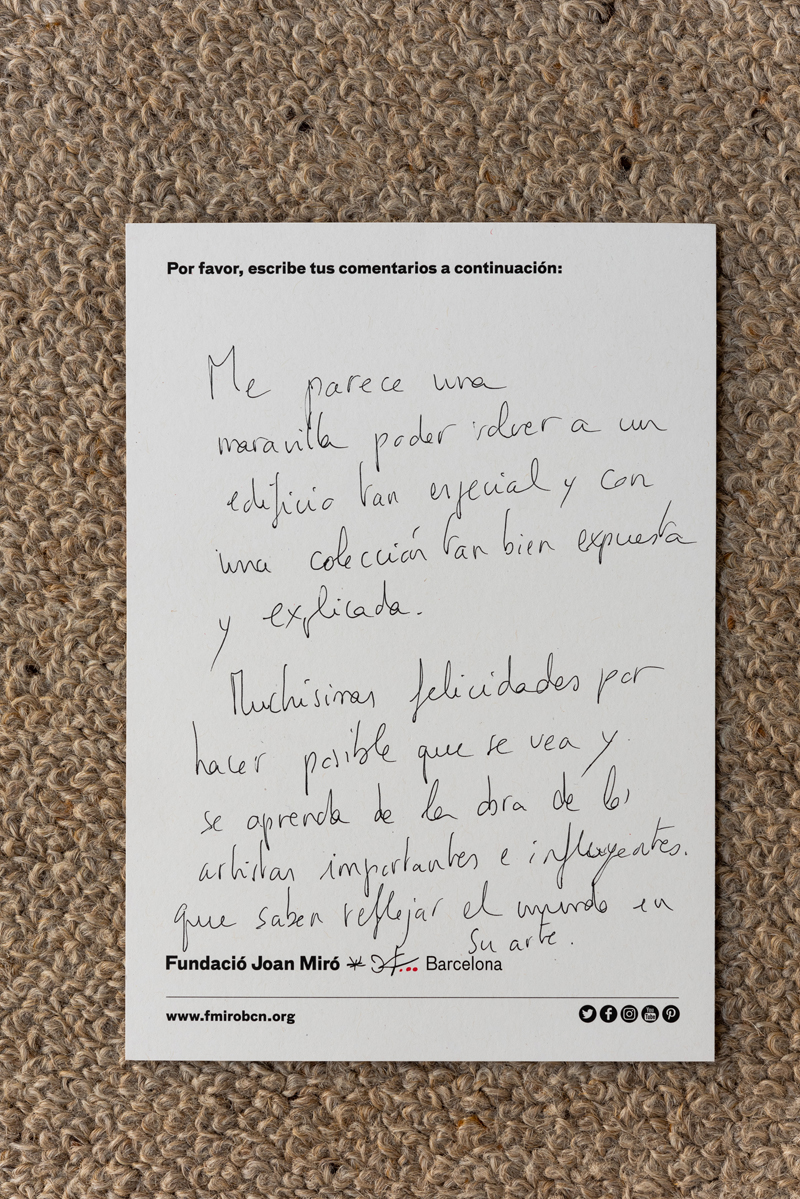 Por favor, escribe tus comentarios a continuación:
Me parece una
maravilla poder volver a un
edificio tan especial y con
una colección tan bien expuesta
y explicada.
Muchísimas felicidades por
hacer posible que se vea y
se aprenda de la obra de los
artistas importantes e influyentes.
que saben reflejar el mundo en
su arte.
Fundació Joan Miró Barcelona
www.fmirobcn.org
You
Tube